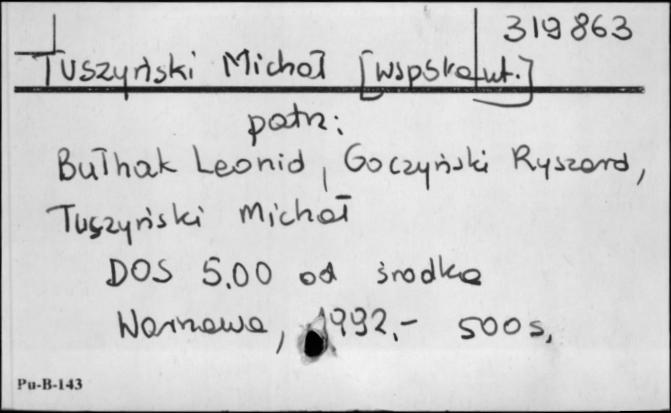 319863
Tuszyński Michał [współaut.]
patrz:
Bułhak Leonid, Goczyński Ryszard,
Tuszyński Michał
DOS 5.00 od środka
Warszawa, 1992.- 500 s.
Pu-B-143